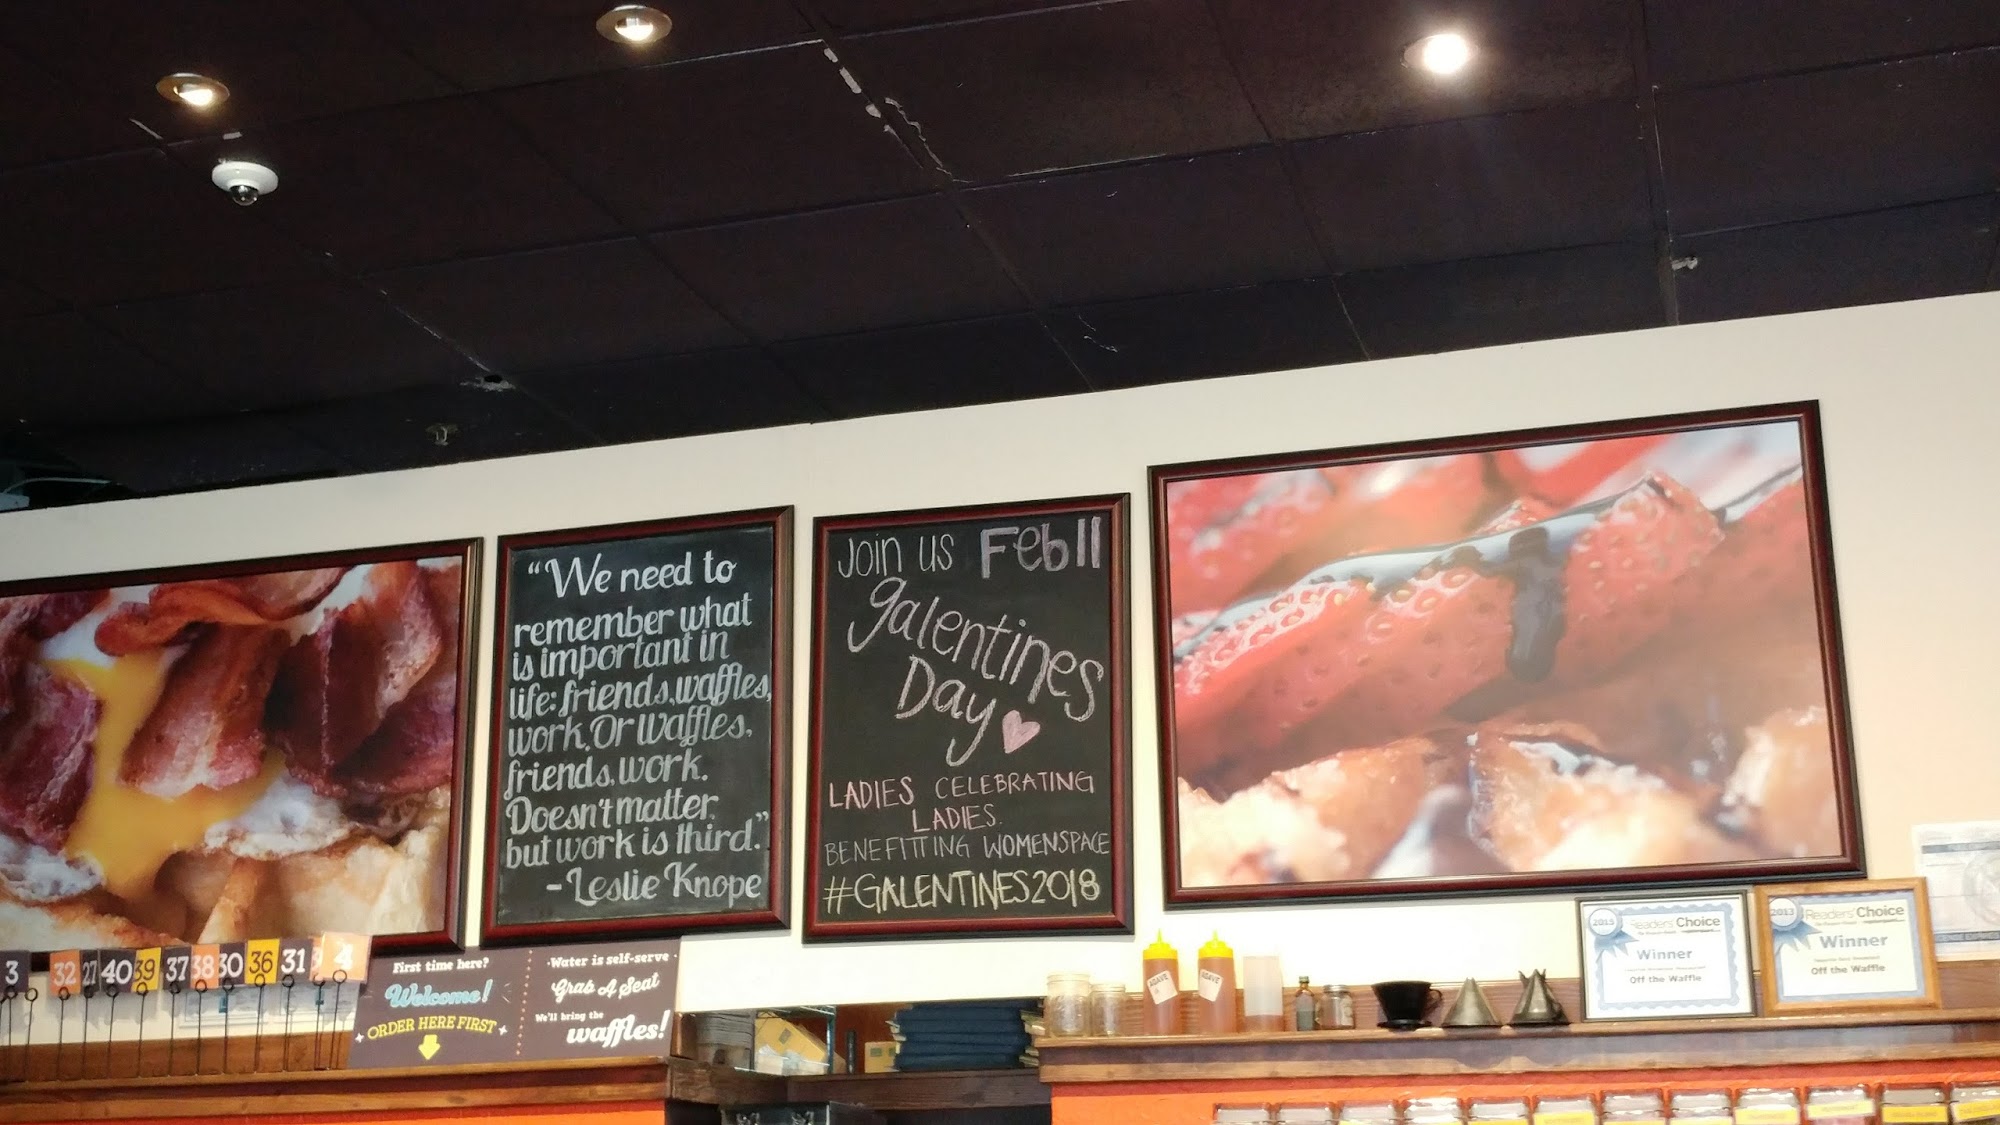 "We need to
remember what
is important in
life: friends, waffles,
work. Or waffles,
friends, work.
Doesn't matter,
but work is third."
-Leslie Knope
Join us Feb 11
galentines
Day
LADIES CELEBRATING
LADIES.
BENEFITTING WOMENSPACE
#GALENTINES2018
3
32
27
40
39
37
38
30
36
31
4
First time here?
Welcome!
ORDER HERE FIRST
·Water is self-serve·
Grab A Seat
We'll bring the
waffles!
AGAVE
AGAVE
2015
Readers' Choice
Winner
Off the Waffle
2013
Readers' Choice
Winner
Off the Waffle